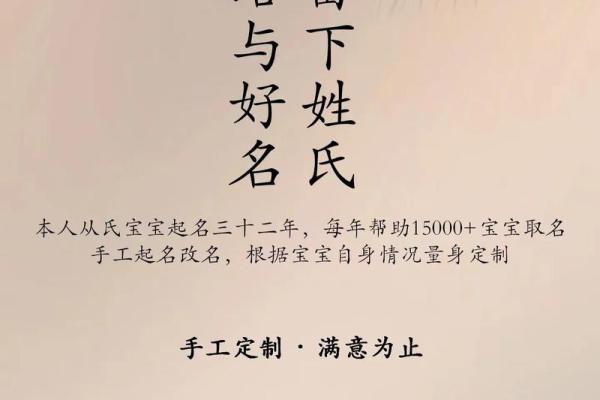 下姓氏
与好名
本人从氏宝宝起名三十二年，每年帮助15000+宝宝取名
手工起名改名，根据宝宝自身情况量身定制
手工定制 · 满意为止